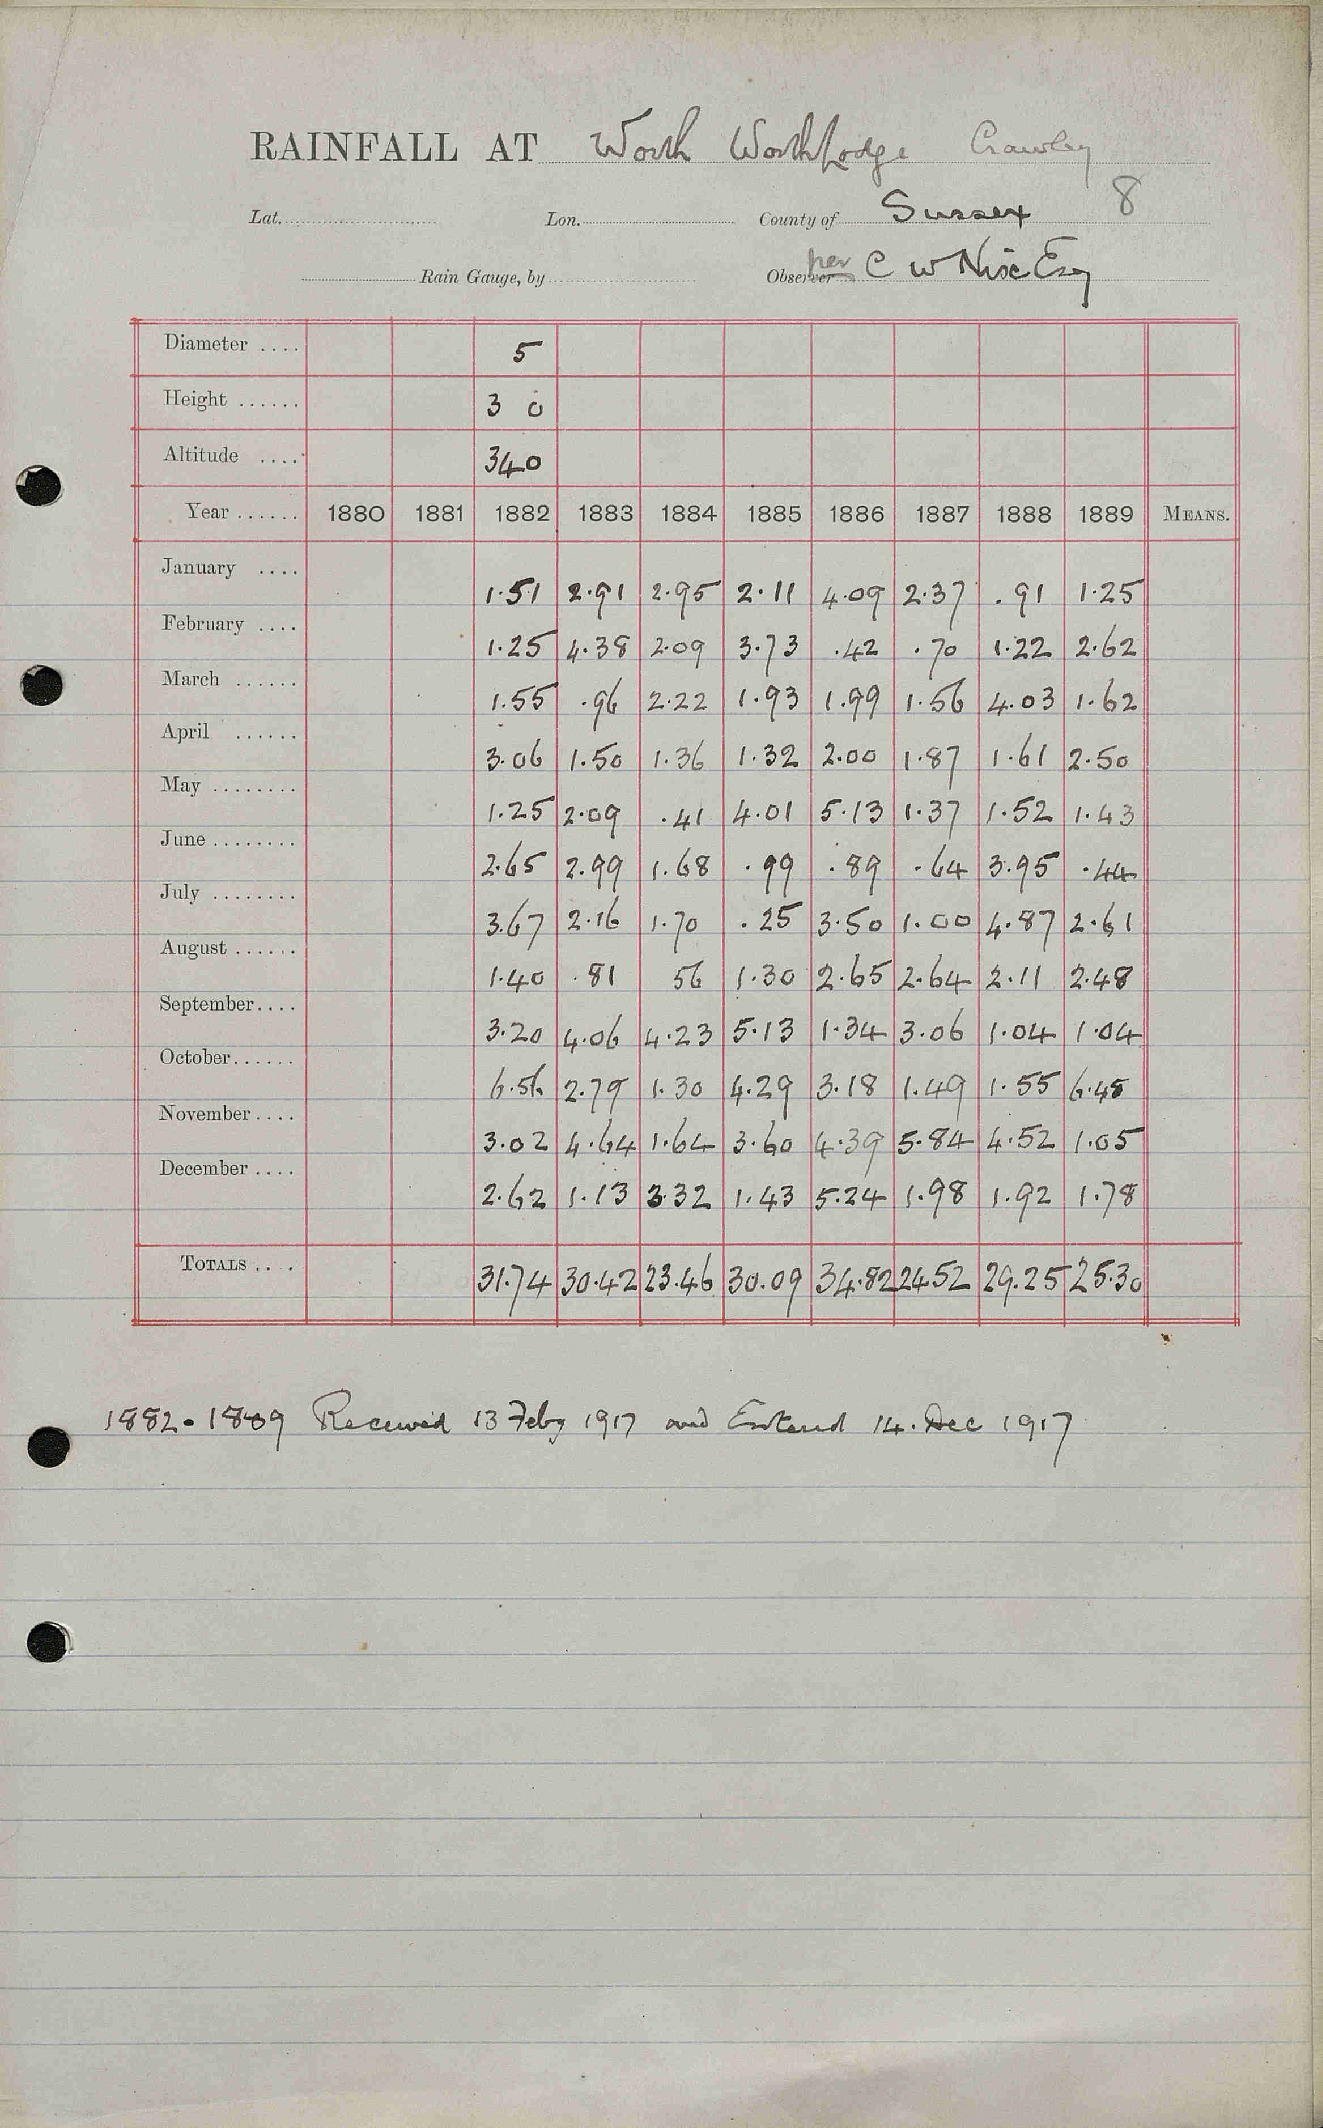 RAINFALL AT Worth Worth Lodge Crawley
Lat. Lon. County of Sussex 8
Rain Gauge, by Observer per C W Nix Esq
Diameter .... 5
Height ...... 3 0
Altitude .... 340
Year ...... 1880 1881 1882 1883 1884 1885 1886 1887 1888 1889 MEANS.
January .... 1.51 2.91 2.95 2.11 4.09 2.37 .91 1.25
February .... 1.25 4.38 2.09 3.73 .42 .70 1.22 2.62
March ...... 1.55 .96 2.22 1.93 1.99 1.56 4.03 1.62
April ...... 3.06 1.50 1.36 1.32 2.00 1.87 1.61 2.50
May ........ 1.25 2.09 .41 4.01 5.13 1.37 1.52 1.43
June ........ 2.65 2.99 1.68 .99 .89 .64 3.95 .44
July ........ 3.67 2.16 1.70 .25 3.50 1.00 4.87 2.61
August ...... 1.40 .81 56 1.30 2.65 2.64 2.11 2.48
September.... 3.20 4.06 4.23 5.13 1.34 3.06 1.04 1.04
October...... 6.56 2.79 1.30 4.29 3.18 1.49 1.55 6.48
November.... 3.02 4.64 1.64 3.60 4.39 5.84 4.52 1.05
December .... 2.62 1.13 3.32 1.43 5.24 1.98 1.92 1.78
TOTALS .... 31.74 30.42 23.46 30.09 34.82 24.52 29.25 25.30
1882-1889 Received 13 Feby 1917 and Entered 14. Dec 1917